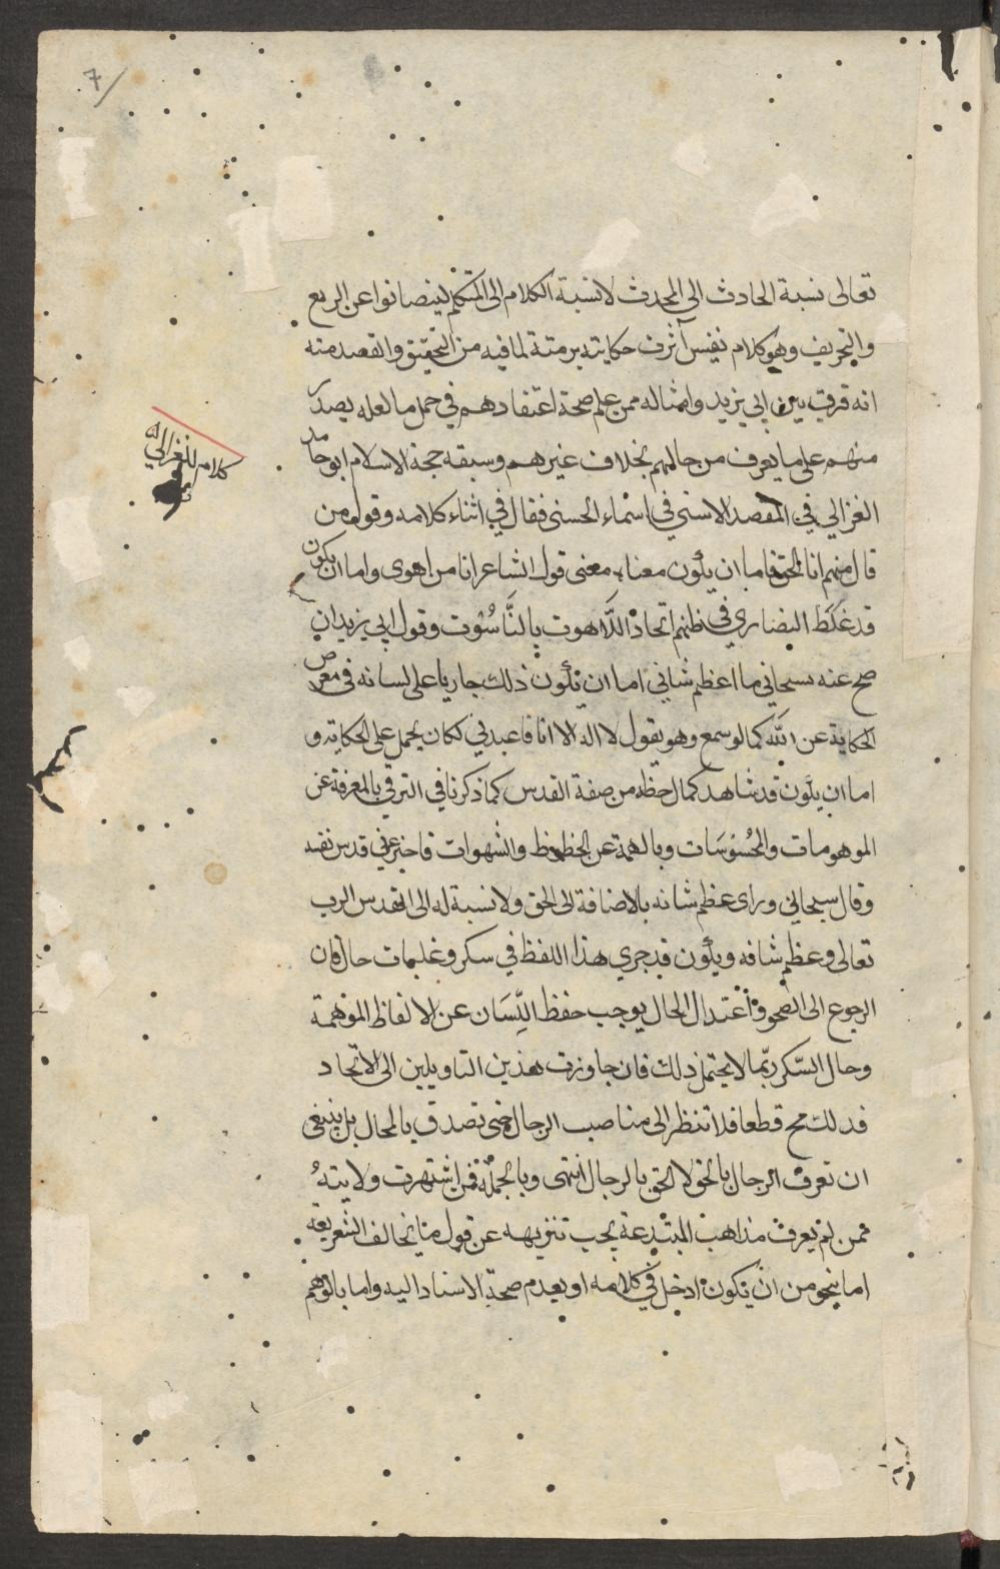 7
تعالى نسبة الحادث الى المحدث لا نسبة الكلام الى المتكلم لينصانوا عن الريع
والتحريف وهو كلام نفيس آثرت حكايته برمته لما فيه من التحقيق والقصد منه
انه فرق بين ابي يزيد وامثاله ممن علم صحة اعتقادهم في حمل ما لعله يصدر
منهم على ما يعرف من حالهم بخلاف غيرهم وسبقه حجة الاسلام ابو حامد
كلام للغزالي
الغزالي في المقصد الاسنى في اسماء الحسنى فقال في اثناء كلامه وقول من
قال منهم انا الحق فاما ان يكون معناه معنى قول الشاعر انا من اهوى واما ان يكون
قد غَلَطَ النصارى في ظنهم اتحاد اللَّاهوت بالنَّاسُوت وقول ابي يزيد ان
صح عنه سبحاني ما اعظم شاني اما ان يكون ذلك جاريا على لسانه في معرض
الحكاية عن الله كما لو سمع وهو يقول لا اله الا انا فاعبدني لكان يحمل على الحكاية و
اما ان يكون قد شاهد كمال حظه من صفة القدس كما ذكرنا في الترقي بالمعرفة عن
الموهومات والمحسُوسَات وبالهمة عن الحظوظ والشهوات فاخبر عن قدس نفسه
وقال سبحاني وراى عظم شانه بالاضافة الى الحق ولا نسبة له الى القدس الرب
تعالى وعظم شانه ويكون قد جرى هذا اللفظ في سكر وغلبات حال فان
الرجوع الى الصحو واعتدال الحال يوجب حفظ اللِّسَان عن الالفاظ الموهمة
وحال السّكر ربّما لا يحتمل ذلك فان جاوزت هذين التاويلين الى الاتحاد
فذلك مح قطعا فلا تنظر الى مناصب الرجال حتى تصدق بالمحال بل ينبغي
ان تعرف الرجال بالحق لا الحق بالرجال انتهى وبالجملة فمن اشتهرت ولايتهُ
ممن لم يعرف مذاهب المبتدعة يجب تنزيهه عن قول ما يخالف الشريعة
اما بنحو من ان يكون ادخل في كلامه او بعدم صحة الاسناد اليه واما بالوهم